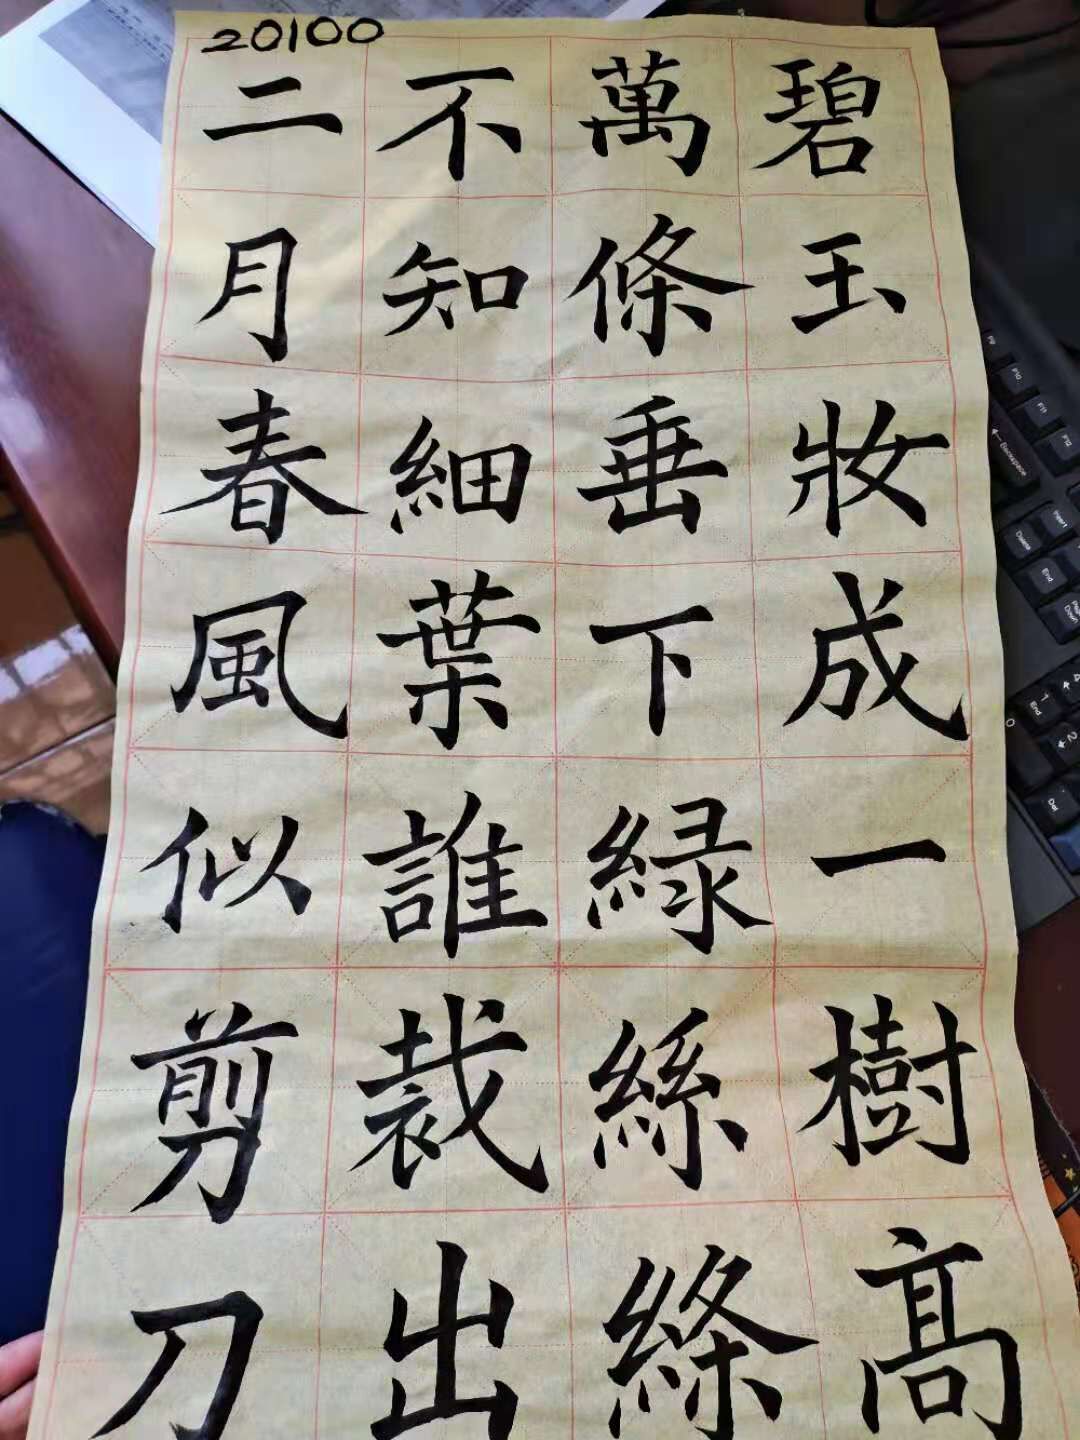 20100
碧玉妝成一樹高
萬條垂下緑絲絛
不知細葉誰裁出
二月春風似剪刀
F9
F10
F11
F12
Backspace
Insert
Delete
End
Page Down
4
1 End
2
0
Del